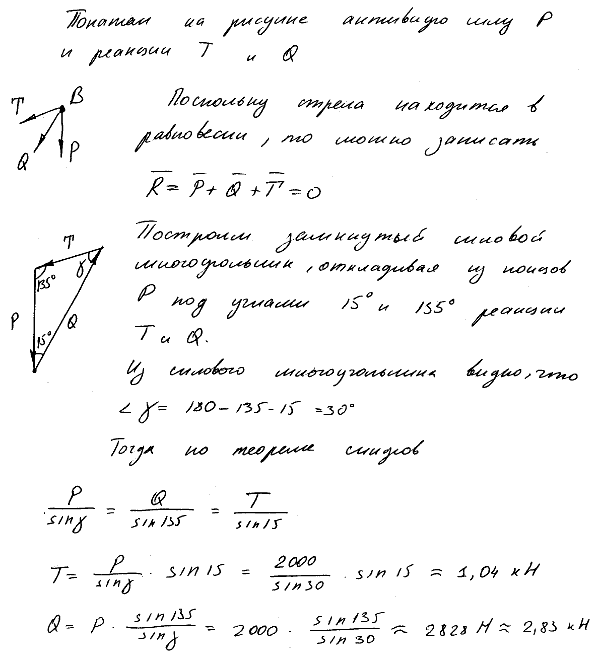 Покажем на рисунке активную силу P
и реакции T и Q
T B
Q P
Поскольку стрела находится в
равновесии, то можно записать
R̅ = P̅ + Q̅ + T̅ = 0
T
135° γ
P Q
15°
Построим замкнутый силовой
многоугольник, откладывая из концов
P под углами 15° и 135° реакции
T и Q.
Из силового многоугольника видно, что
∠ γ = 180 - 135 - 15 = 30°
Тогда по теореме синусов
P / sin γ = Q / sin 135 = T / sin 15
T = P / sin γ · sin 15 = 2000 / sin 30 · sin 15 ≈ 1,04 кН
Q = P · sin 135 / sin γ = 2000 · sin 135 / sin 30 ≈ 2828 Н ≈ 2,83 кН